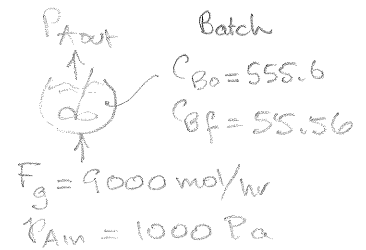 P_A out
Batch
C_Bo = 555.6
C_Bf = 55.56
F_g = 9000 mol/hr
P_Ain = 1000 Pa